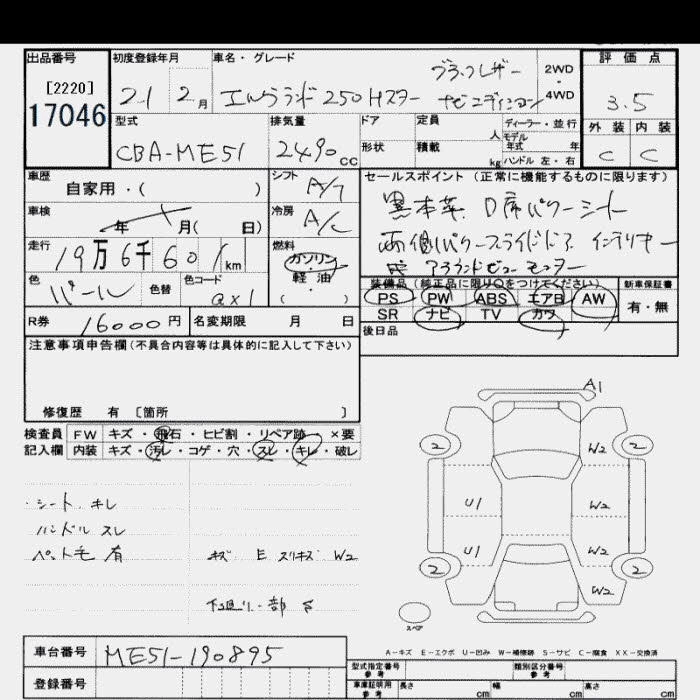 出品番号
[2220]
17046
初度登録年月
21 2月
車名・グレード
エルグランド250Hスター
ブラックレザー
ナビエディション
2WD
4WD
評価点
3.5
外装 内装
C C
型式
CBA-ME51
排気量
2490cc
ドア
形状
定員 人
積載 kg
ディーラー・並行
モデル
年式 年
ハンドル 左・右
車歴
自家用・( )
シフト
A/T
セールスポイント(正常に機能するものに限ります)
黒本革、D席パワーシート
両側パワースライドドア インテリキー
アラウンドビューモニター
車検
年 月( 日)
冷房
A/C
走行
19万6千601km
燃料
ガソリン
・
軽油
( )
色
パール
色替
色コード
QX1
装備品(純正品に限り○をつけてください)
PS PW ABS エアB AW
SR ナビ TV カワ
新車保証書
有・無
R券
16000円
名変期限 月 日
後日品
注意事項申告欄(不具合内容等は具体的に記入して下さい)
修復歴 有 [箇所 ]
検査員
記入欄
FW キズ・飛石・ヒビ割・リペア跡 ×要
内装 キズ・汚レ・コゲ・穴・スレ・キレ・破レ
・シート キレ
ハンドル スレ
ペット毛 有
キズ E スリキズ W2
下廻り・部サ
A1
2 W2 2
U1 W2
U1 W2
2 W2 2
スペア
A-キズ E-エクボ U-凹み W-補修跡 S-サビ C-腐食 XX-交換済
車台番号
ME51-190895
登録番号
型式指定番号
参考
類別区分番号
参考
車庫証明用
参考
長さ cm
幅 cm
高さ cm